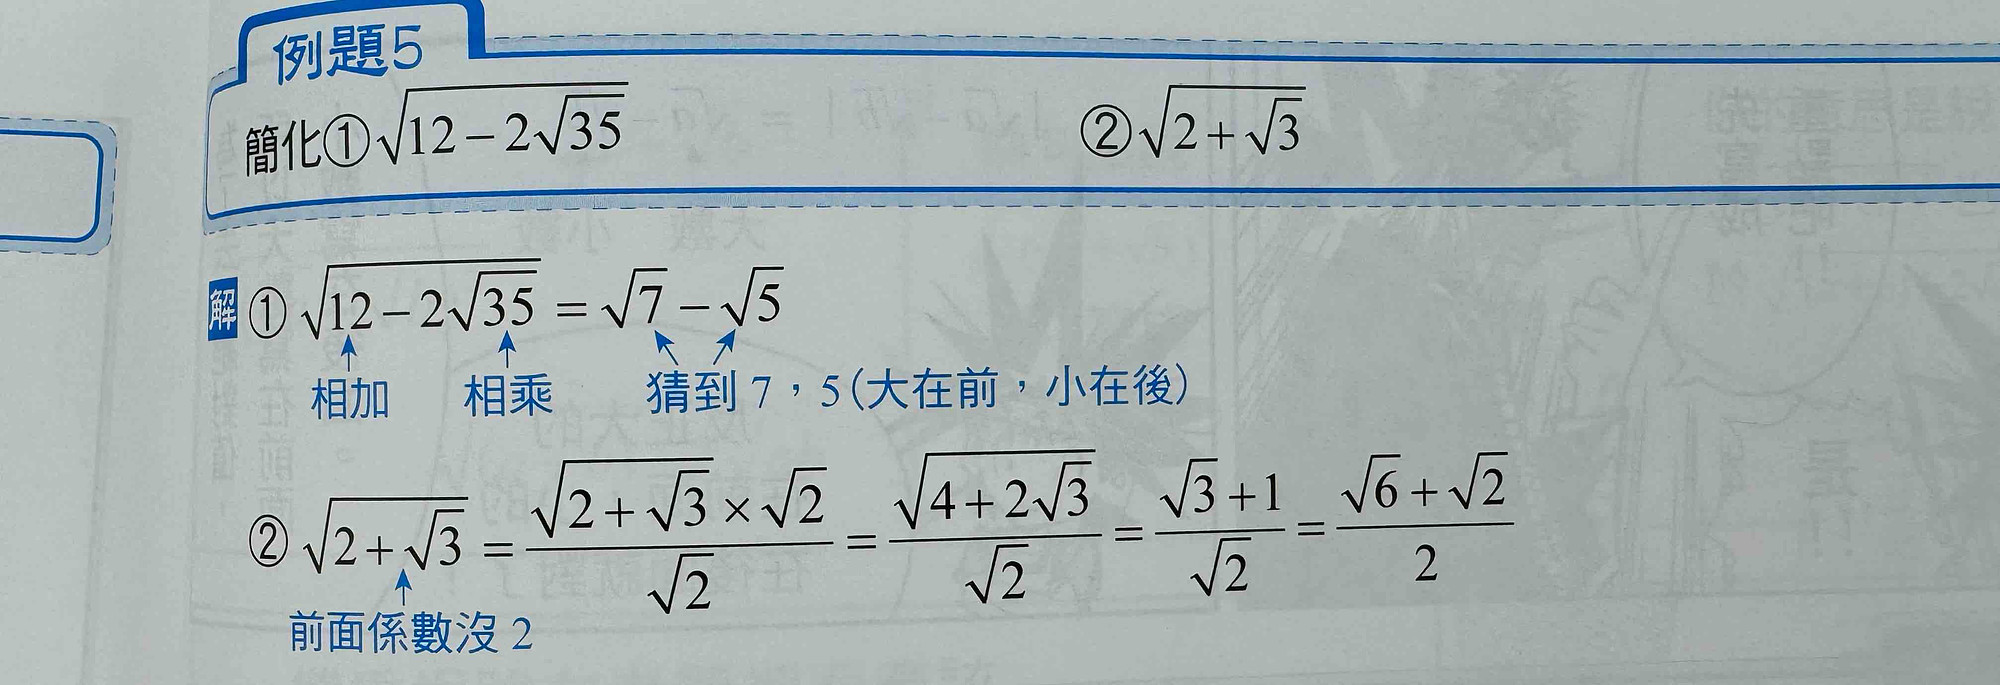 例題5
簡化①√(12－2√35)　②√(2＋√3)
解 ① √(12－2√35) = √7－√5
相加　相乘　猜到 7，5(大在前，小在後)
② √(2＋√3) = (√(2＋√3)×√2)/√2 = √(4＋2√3)/√2 = (√3＋1)/√2 = (√6＋√2)/2
前面係數沒 2